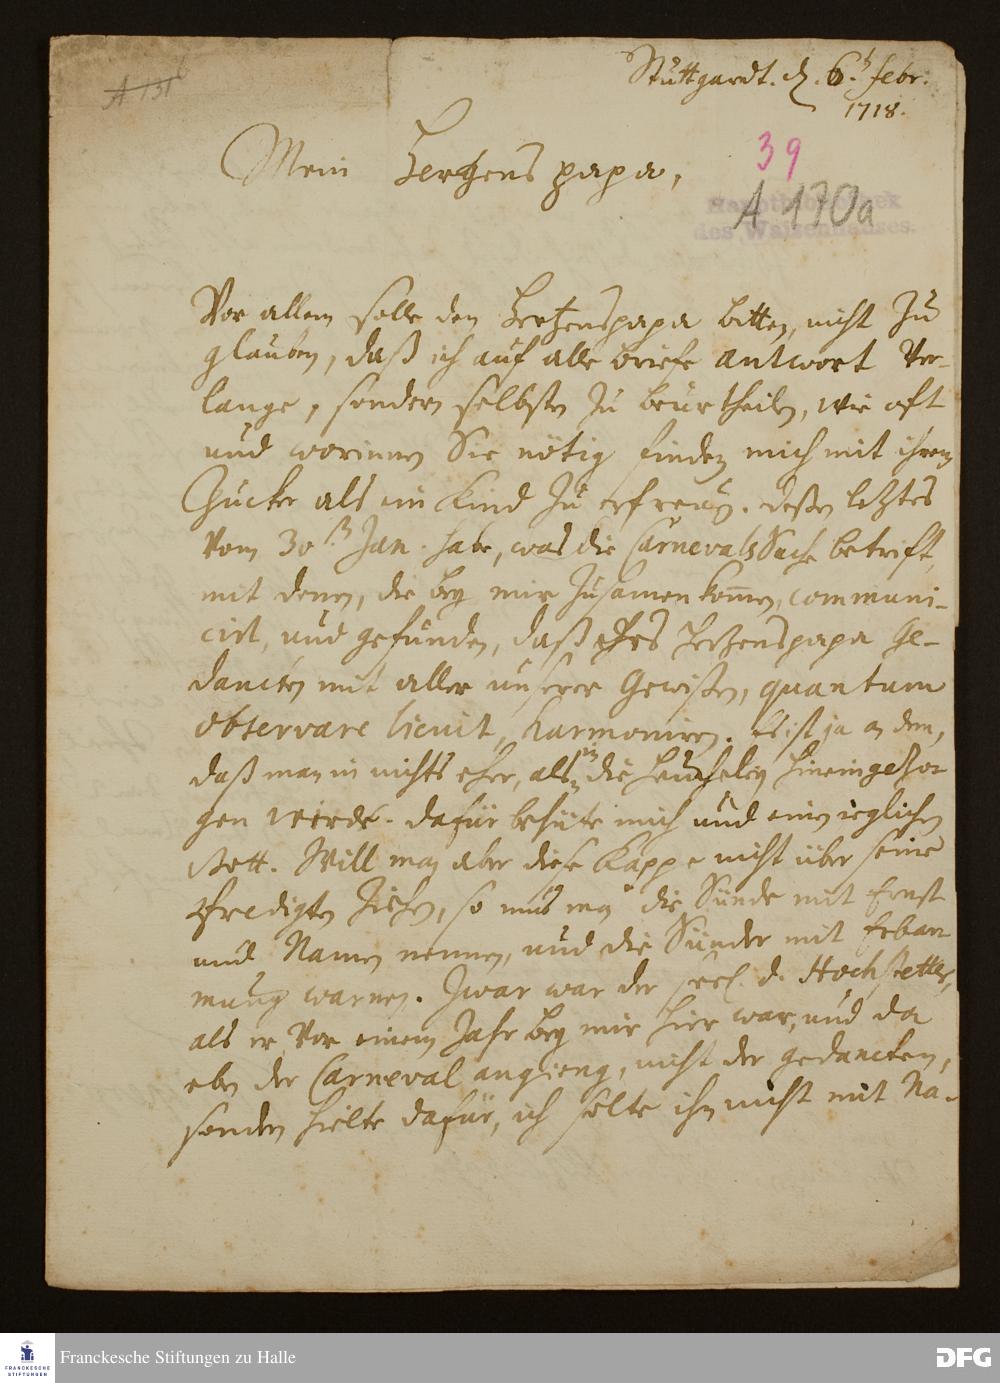 A 131 b
Stuttgardt. d. 6.t febr.
1718.
Mein Hertzens papa,
39
A 170a
Hauptbibliothek
des Waisenhauses.
Vor allem solle den Hertzenspapa bitten, nicht zu
glauben, daß ich auf alle briefe antwort Ver-
lange, sondern selbsten zu beurtheilen, wie oft
und worinnen Sie nötig finden mich mit ihrem
Zucker als ein Kind zu erfreuen. Deßen letztes
vom 30.t Jan. habe, was die CarnevalsSache betrift,
mit denen, die bey mir zusamen kom̄en, communi-
cirt, und gefunden, daß des Hertzenspapa Ge-
dancken mit aller unserer Gewißen, quantum
observare licuit, harmoniren. Es ist ja an dem,
daß man in nichts eher, als in die heucheley hineingezo-
gen werde. dafür behüte mich und einen ieglichen
Gott. Will man aber diese Kappe nicht über seine
predigten ziehen, so muß man die Sünde mit Ernst
und Namen nennen, und die Sünder mit Erbar-
mung warnen. Zwar war der seel. D. Hochstetter,
als er vor einem Jahr bey mir hier war, und da
eben der Carneval angieng, nicht der gedancken,
sondern hielte dafür, ich solte ihn nicht mit Na-
FRANCKESCHE
STIFTUNGEN
Franckesche Stiftungen zu Halle
DFG